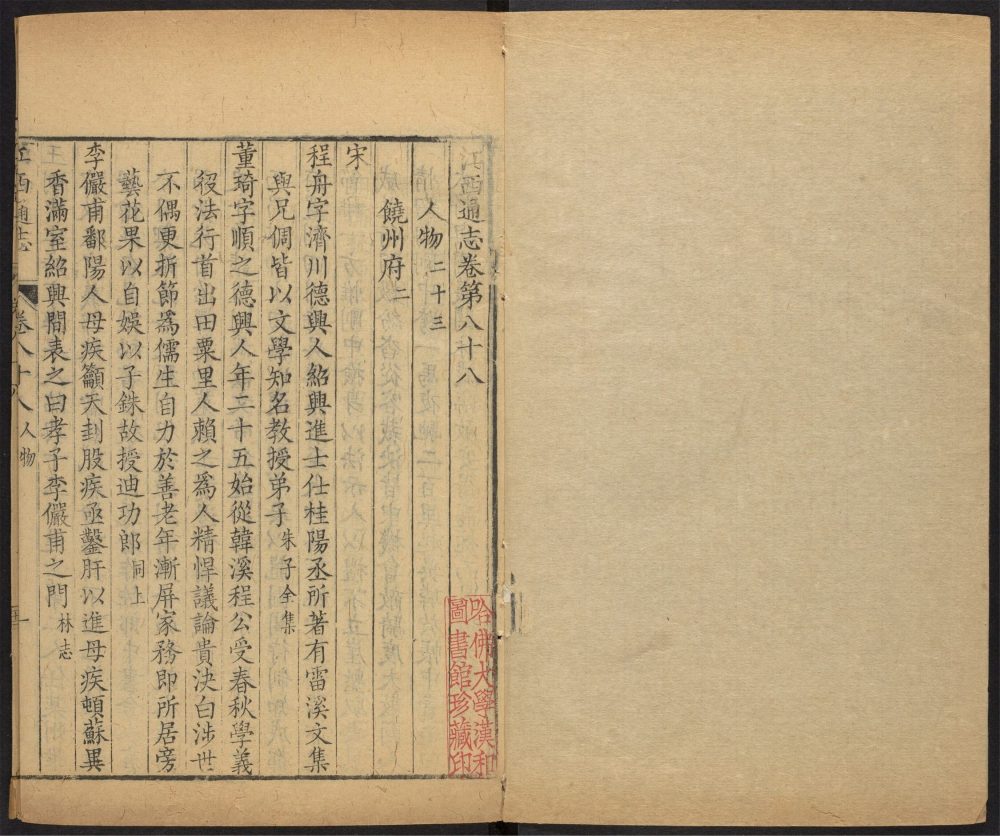 江西通志卷第八十八
人物二十三
饒州府二
宋
程舟字濟川德興人紹興進士仕桂陽丞所著有雷溪文集
與兄倜皆以文學知名教授弟子朱子全集
董琦字順之德興人年二十五始從韓溪程公受春秋學義
役法行首出田粟里人賴之為人精悍議論貴決白涉世
不偶更折節為儒生自力於善老年漸屏家務即所居旁
藝花果以自娛以子銖故授迪功郎同上
李儼甫鄱陽人母疾籲天刲股疾亟鑿肝以進母疾頓蘇異
香滿室紹興間表之曰孝子李儼甫之門林志
江西通志
卷八十八人物
一
哈佛大學漢和
圖書館珍藏印